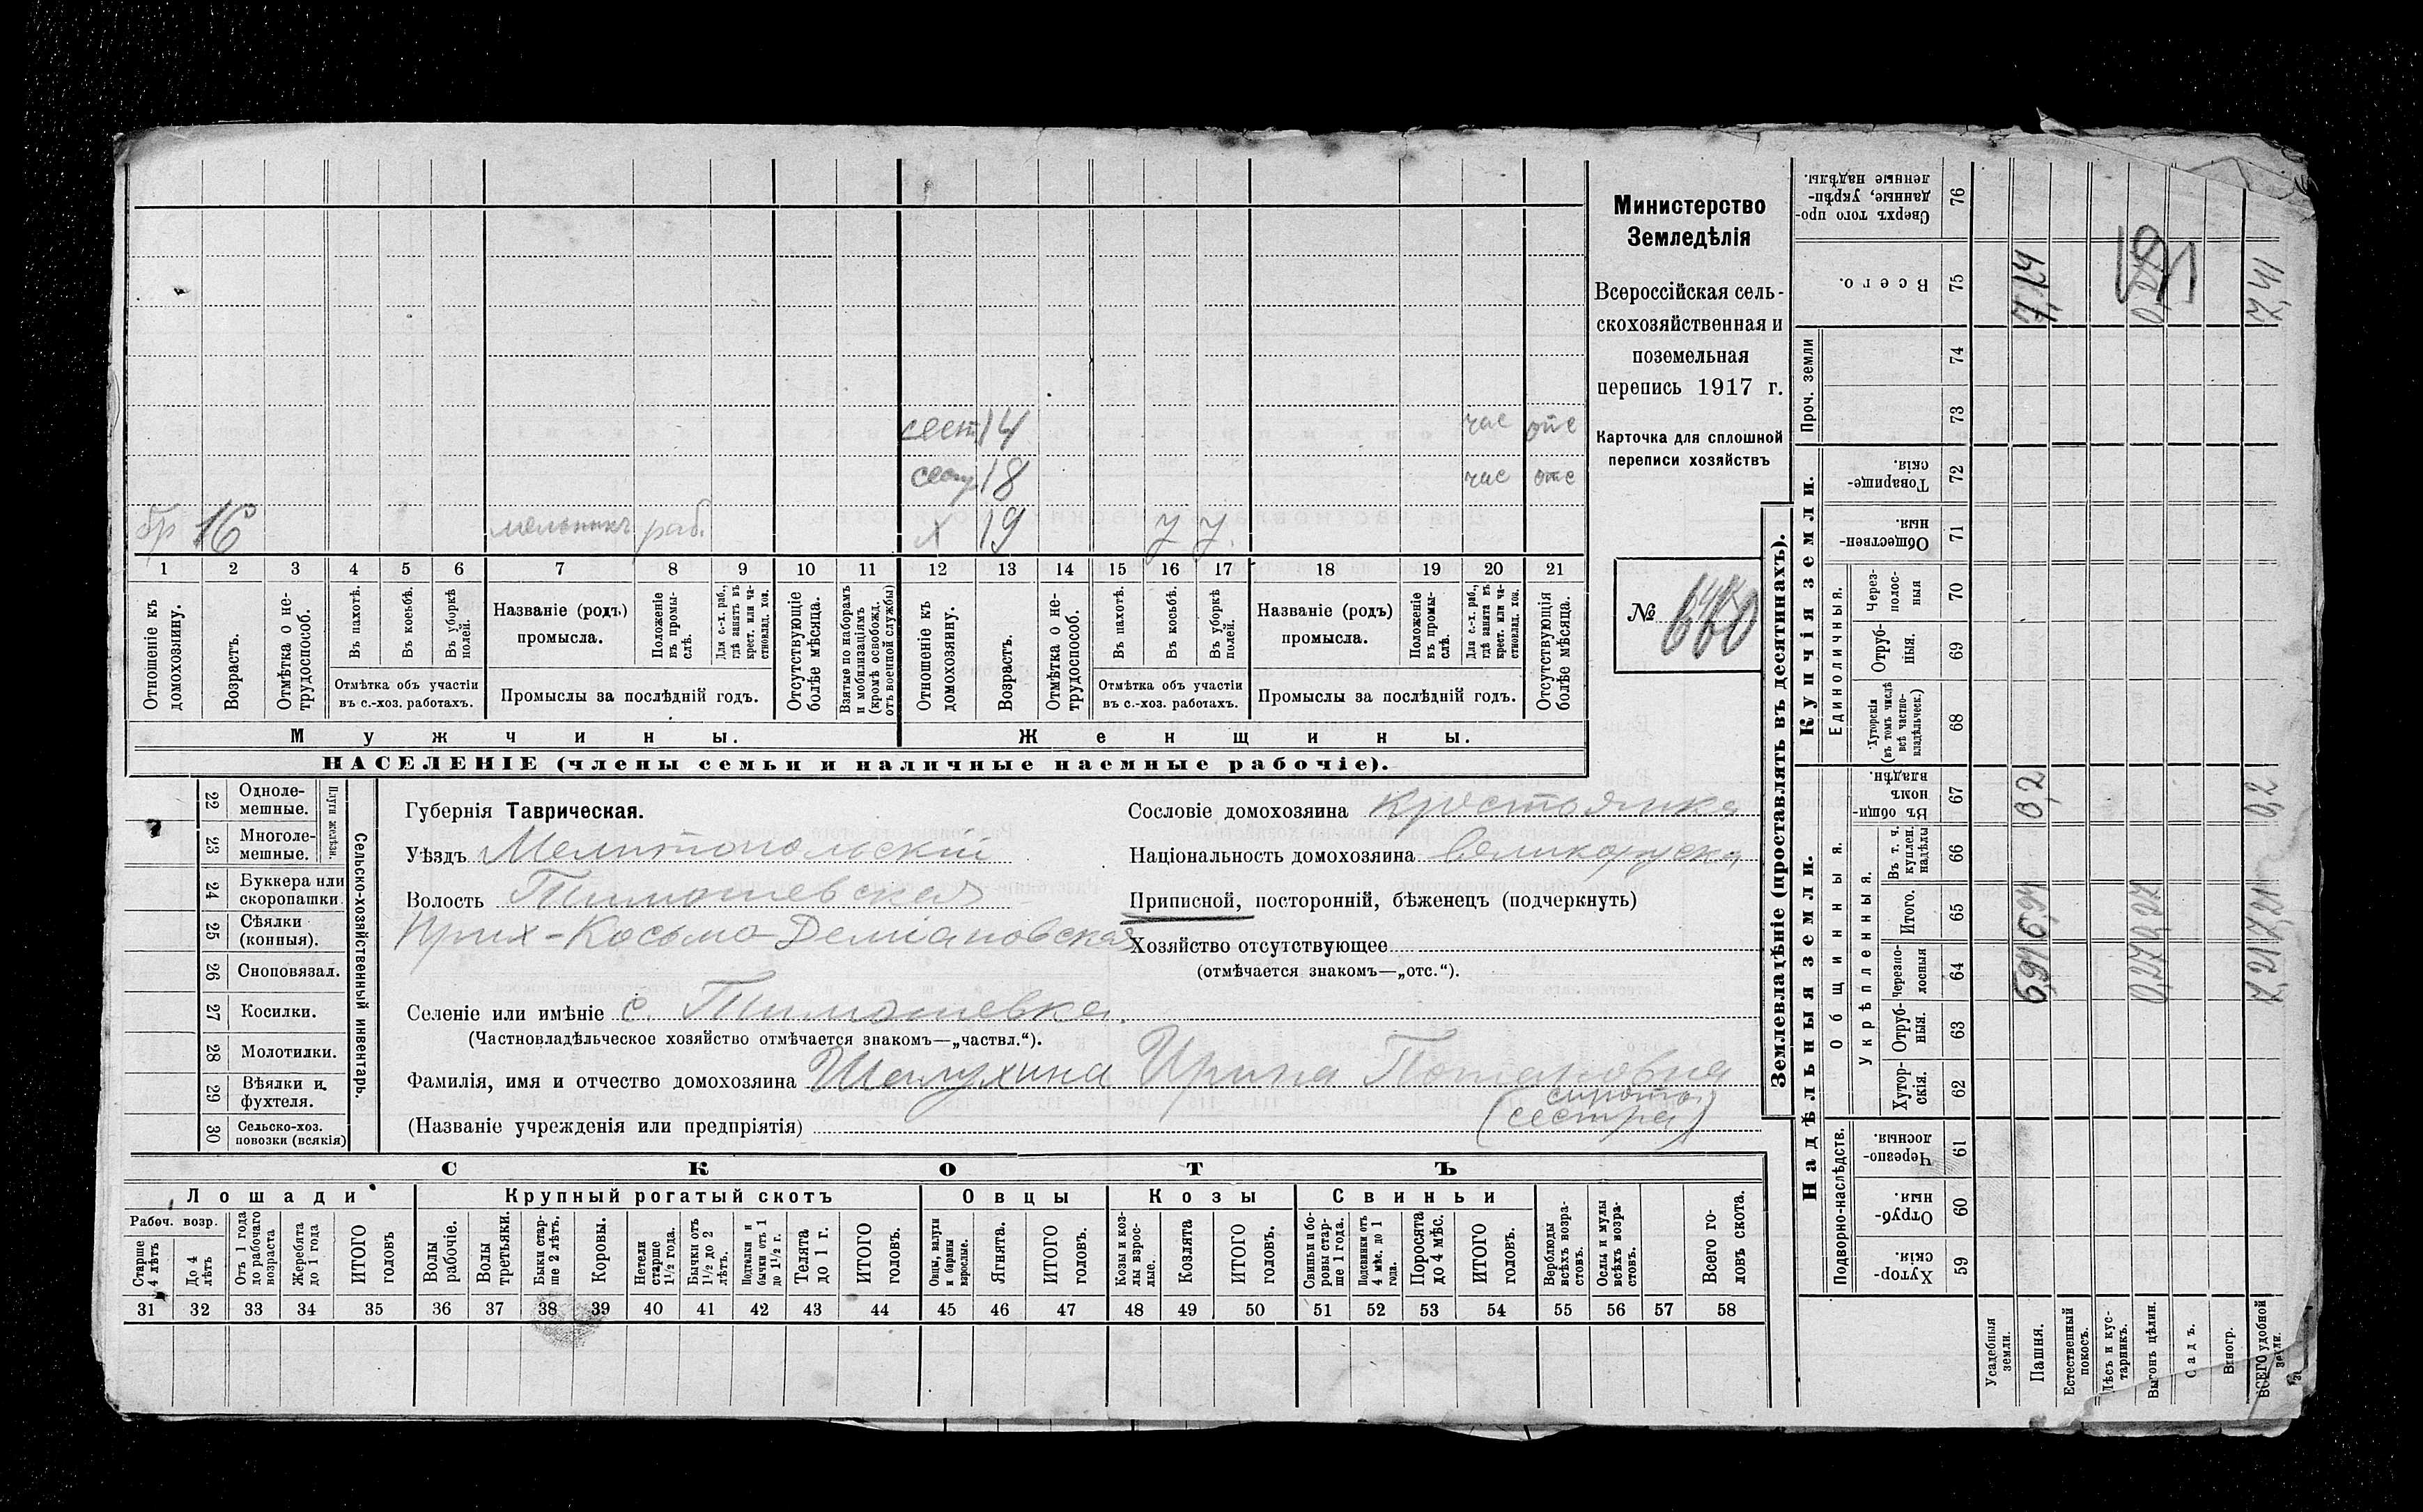 Министерство
Земледѣлія
Всероссійская сель-
скохозяйственная и
поземельная
перепись 1917 г.
Карточка для сплошной
переписи хозяйствъ
№ 660
сест 14 час отс
сест 18 час отс
бр 16 мельникъ раб. х 19 у у
1 2 3 4 5 6 7 8 9 10 11 12 13 14 15 16 17 18 19 20 21
Отношеніе къ домохозяину.
Возрастъ.
Отмѣтка о не-трудоспособ.
Въ пахотѣ.
Въ косьбѣ.
Въ уборкѣ полей.
Отмѣтка объ участіи
въ с.-хоз. работахъ.
Названіе (родъ)
промысла.
Положеніе въ промы-слѣ.
Для с.-х. раб., гдѣ занятъ въ крест. или ча-стновлад. хоз.
Промыслы за послѣдній годъ.
Отсутствующіе болѣе мѣсяца.
Взятые по наборамъ и мобилизаціямъ (кромѣ освобожд. отъ военной службы)
Отношеніе къ домохозяину.
Возрастъ.
Отмѣтка о не-трудоспособ.
Въ пахотѣ.
Въ косьбѣ.
Въ уборкѣ полей.
Отмѣтка объ участіи
въ с.-хоз. работахъ.
Названіе (родъ)
промысла.
Положеніе въ промы-слѣ.
Для с.-х. раб., гдѣ занята въ крест. или ча-стновлад. хоз.
Промыслы за послѣдній годъ.
Отсутствующія болѣе мѣсяца.
Мужчины. Женщины.
НАСЕЛЕНІЕ (члены семьи и наличные наемные рабочіе).
22 Одноле-мешные.
23 Многоле-мешные.
Плуги желѣзн.
24 Буккера или скоропашки
25 Сѣялки (конныя).
26 Сноповязал.
27 Косилки.
28 Молотилки.
29 Вѣялки и фухтеля.
30 Сельско-хоз. повозки (всякія)
Сельско-хозяйственный инвентарь.
Губернія Таврическая.
Уѣздъ Мелитопольскій
Волость Тимошевская
Прих-Косьмо-Деміановская
Селеніе или имѣніе с. Тимошевка.
(Частновладѣльческое хозяйство отмѣчается знакомъ—„частвл.“).
Фамилія, имя и отчество домохозяина Шалухина Ирина Потаповна
сирота
(Названіе учрежденія или предпріятія) (сестра)
Сословіе домохозяина крестьянка
Національность домохозяина великорусска
Приписной, посторонній, бѣженецъ (подчеркнуть)
Хозяйство отсутствующее
(отмѣчается знакомъ—„отс.“).
СКОТЪ
Лошади Крупный рогатый скотъ Овцы Козы Свиньи
Рабоч. возр.
Старше 4 лѣтъ
До 4 лѣтъ
Отъ 1 года до рабочаго возраста
Жеребята до 1 года
ИТОГО головъ
Волы рабочіе.
Волы третьяки.
Быки стар-ше 2 лѣтъ.
Коровы.
Нетели старше 1½ года.
Бычки отъ 1½ до 2 лѣтъ.
Подтелки и бычки отъ 1 до 1½ г.
Телята до 1 г.
ИТОГО головъ.
Овцы, валухи и бараны взрослые.
Ягнята.
ИТОГО головъ.
Козы и коз-лы взрос-лые.
Козлята
ИТОГО головъ.
Свиньи и бо-ровы стар-ше 1 года.
Подсвинки отъ 4 мѣс. до 1 года.
Поросята до 4 мѣс.
ИТОГО головъ.
Верблюды всѣхъ возра-стовъ.
Ослы и мулы всѣхъ возра-стовъ.
Всего го-ловъ скота.
31 32 33 34 35 36 37 38 39 40 41 42 43 44 45 46 47 48 49 50 51 52 53 54 55 56 57 58
Землевладѣніе (проставлять въ десятинахъ).
Надѣльныя земли. Купчія земли.
Подворно-наслѣдств.
Общинныя.
Укрѣпленныя.
Единоличныя.
Проч. земли
Хутор-скія. 59
Отруб-ныя. 60
Черезпо-лосныя. 61
Хутор-скія. 62
Отруб-ныя. 63
Черезпо-лосныя 64
Итого. 65
Въ т. ч. куплен. надѣлы 66
Въ общи-номъ владѣн. 67
Хуторскія (въ томъ числѣ всѣ частно-владѣльческ.) 68
Отруб-ныя. 69
Через-полос-ныя 70
Обществен-ныя. 71
Товарище-скія. 72
73
74
Всего. 75
Сверхъ того про-данные, укрѣп-ленные надѣлы. 76
Усадебныя земли.
Пашня. 6,94 6,94 0,2 7,14
Естественный покосъ.
Лѣсъ и кус-тарникъ.
Выгонъ цѣлин. 0,27 0,27 0,27
191
Садъ.
Виногр.
ВСЕГО удобной земли. 7,21 7,21 0,2 7,41